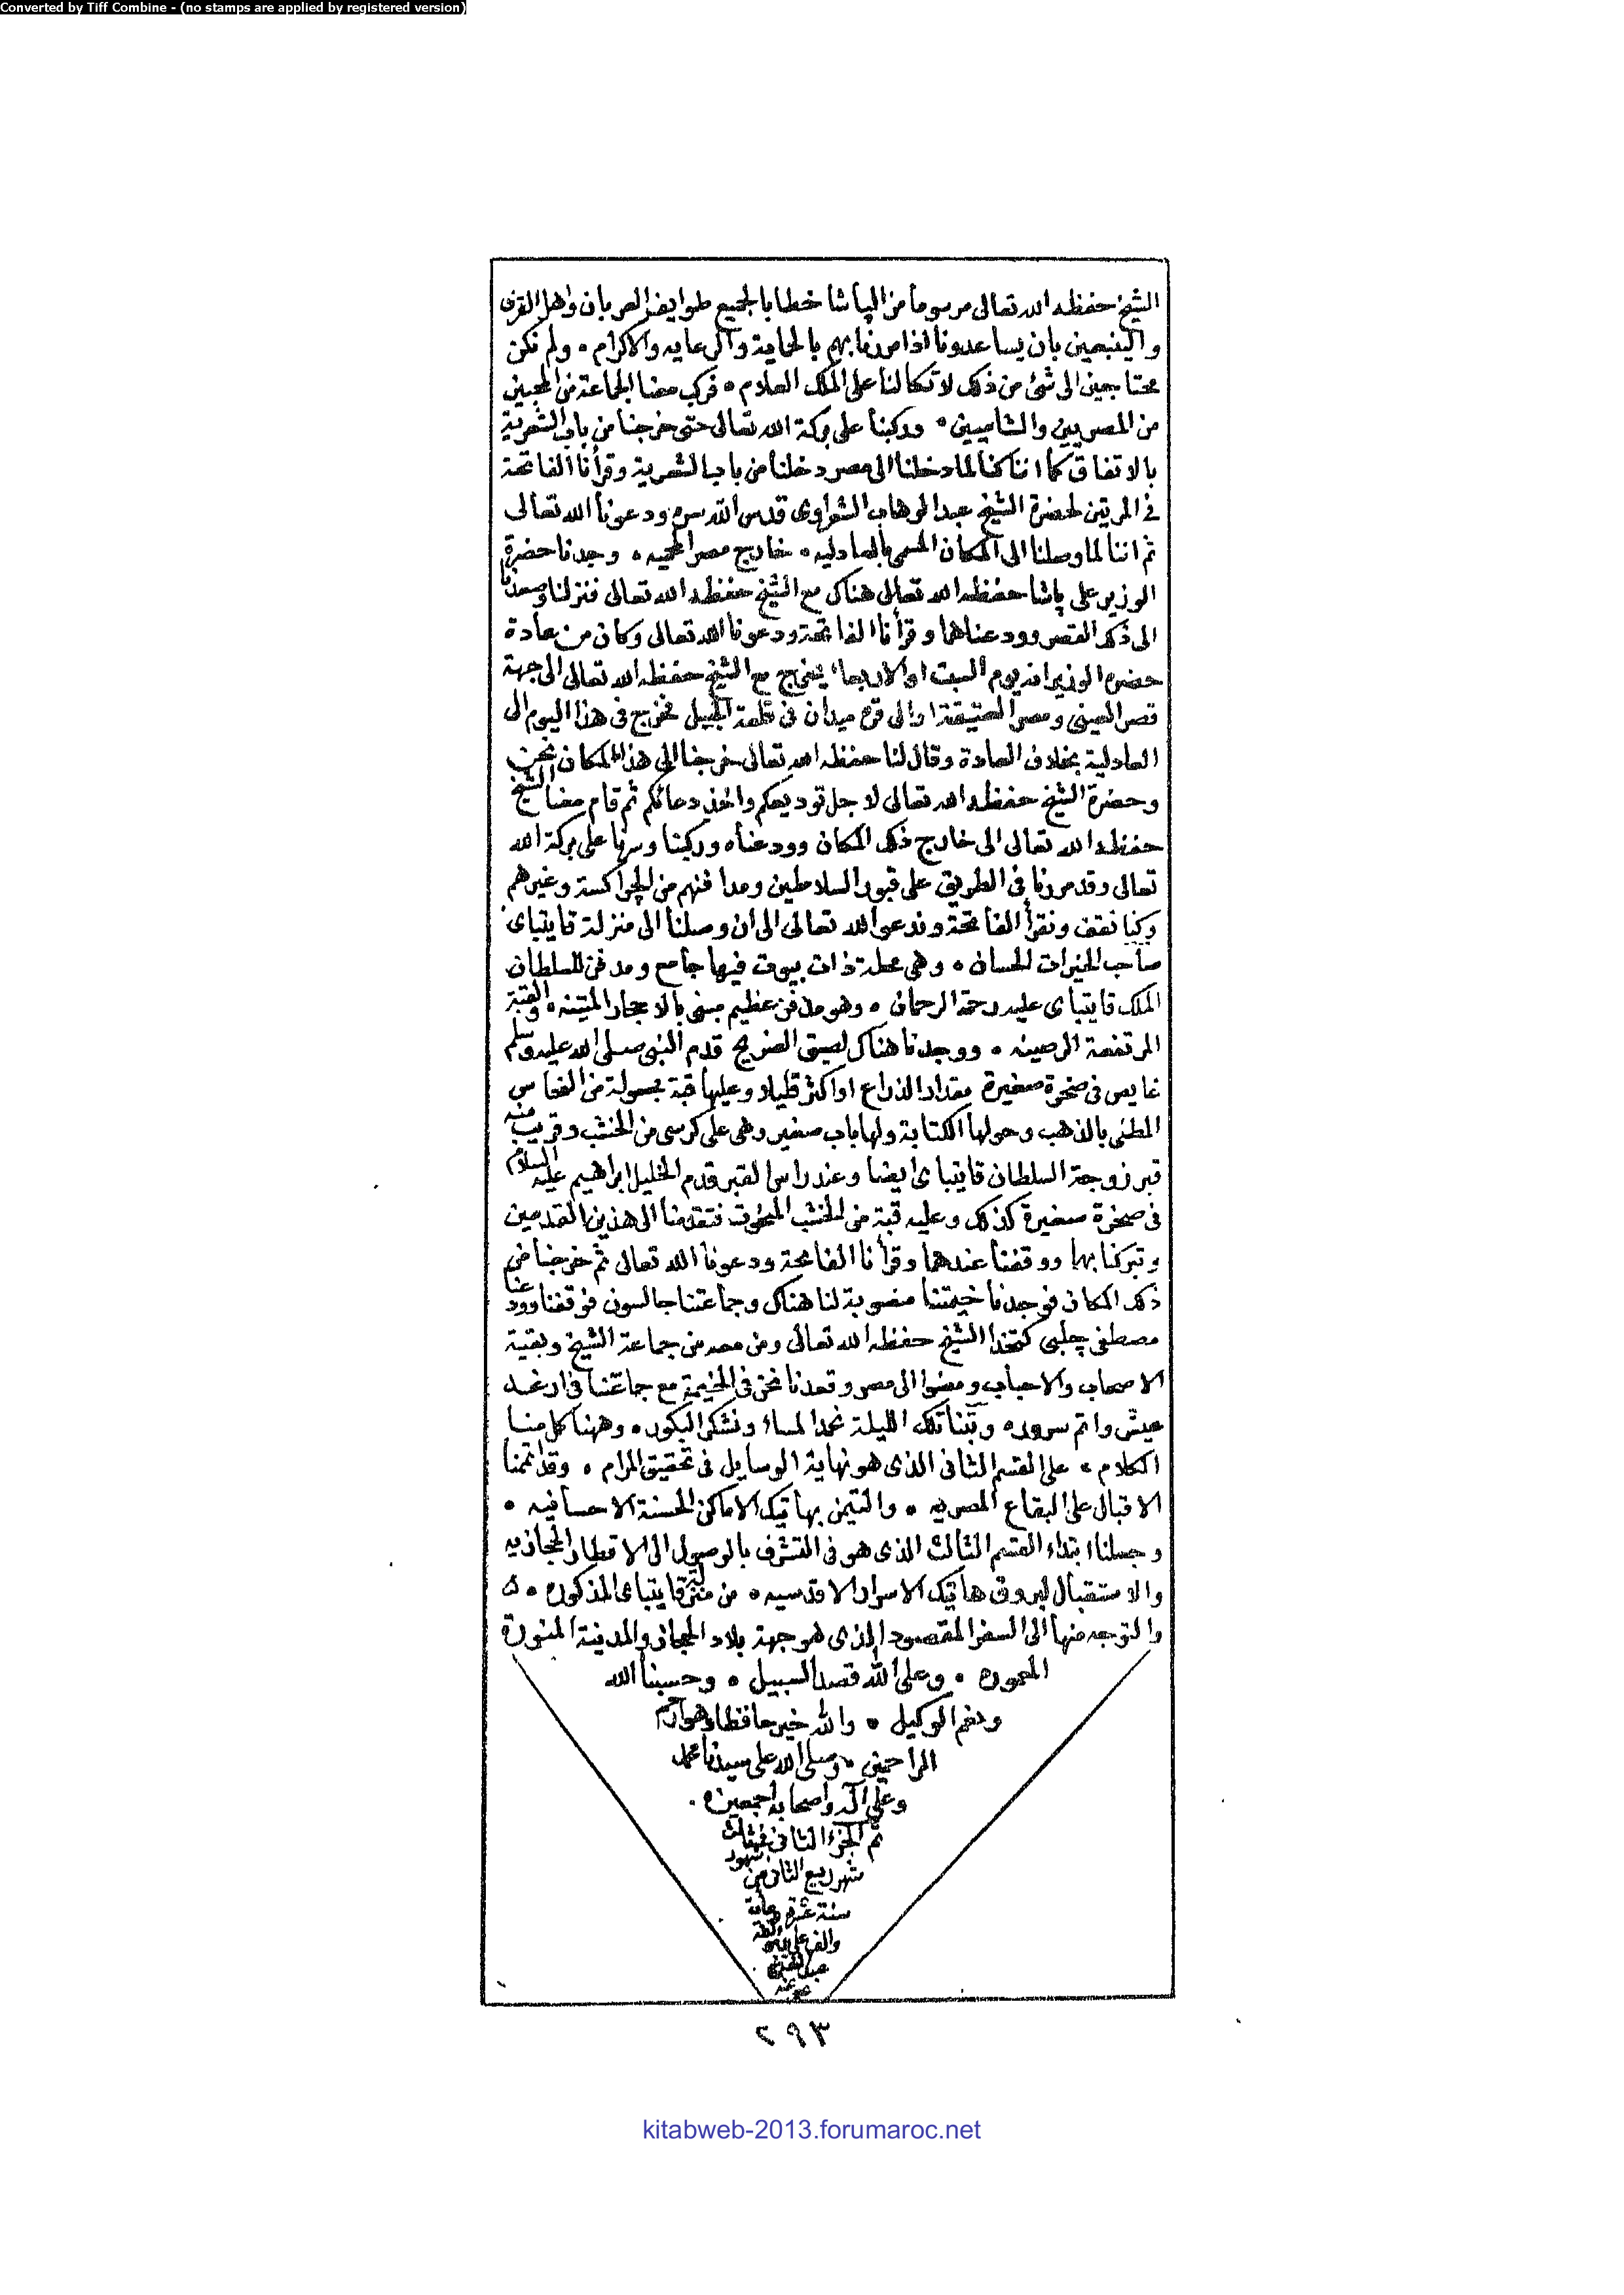 Converted by Tiff Combine - (no stamps are applied by registered version)
الشيخ حفظه الله تعالى مرسوما من الباشا خطابا لجميع طوايف العربان واهل القرى
والينبعين بان يساعدونا اذا مررنا بهم بالحماية والرعايه والاكرام ۰ ولم نكن
محتاجين الى شئ من ذلك لاتكالنا على الملك العلام ۰ فركب معنا الجماعة من المحبين
من المصريين والشاميين ۰ وركبنا على بركة الله تعالى حتى خرجنا من باب الشعرية
بالاتفاق كما اننا كنا لما دخلنا الى مصر دخلنا من باب الشعرية وقرأنا الفاتحة
في المرتين لحضرة الشيخ عبد الوهاب الشعراوى قدس الله سره ودعونا الله تعالى
ثم اننا لما وصلنا الى المكان المسمى بالعادليه ۰ خارج مصر المحميه ۰ وجدنا حضرة
الوزير على پاشا حفظه الله تعالى هناك مع الشيخ حفظه الله تعالى فنزلنا وصعدنا
الى ذلك القصر وودعناهما وقرأنا الفاتحة ودعونا الله تعالى وكان من عادة
حضرة الوزير انه يوم السبت او الاربعاء يخرج مع الشيخ حفظه الله تعالى الى جهة
قصر العيني ومصر العتيقة او الى قره ميدان في قلعة الجبل فخرج في هذا اليوم الى
العادلية بخلاف العادة وقال لنا حفظه الله تعالى خرجنا الى هذا المكان نحن
وحضرة الشيخ حفظه الله تعالى لاجل توديعكم واخذ دعائكم ثم قام معنا الشيخ
حفظه الله تعالى الى خارج ذلك المكان وودعناه وركبنا وسرنا على بركة الله
تعالى وقد مررنا في الطريق على قبور السلاطين ومدافنهم من الچراكسة وغيرهم
وكنا نقف ونقرأ الفاتحة وندعو الله تعالى الى ان وصلنا الى منزلة قايتباى
صاحب الخيرات الحسان ۰ وهى محلة ذات بيوت فيها جامع ومدفن للسلطان
الملك قايتباى عليه رحمة الرحمان ۰ وهو مدفن عظيم مبنى بالاحجار المتينه ۰ والقبة
المرتفعة الرصينه ۰ ووجدنا هناك لصيق الضريح قدم النبى صلى الله عليه وسلم
غايص في صخرة صغيرة مقدار الذراع او اكثر قليلا وعليها قبة معمولة من النحاس
المطلى بالذهب وحولها الكتابة ولها باب صغير وهى على كرسى من الخشب وقريب منه
قبر زوجة السلطان قايتباى ايضا وعند راس القبر قدم الخليل ابراهيم عليه السلام
في صخرة صغيرة كذلك وعليه قبة من الخشب المنحوت فتقدمنا الى هذين القدمين
وتبركنا بهما ووقفنا عندهما وقرأنا الفاتحة ودعونا الله تعالى ثم خرجنا من
ذلك المكان فوجدنا خيمتنا منصوبة لنا هناك وجماعتنا جالسون فوقفنا وودعنا
مصطفى چلبى كتخدا الشيخ حفظه الله تعالى ومن معه من جماعة الشيخ وبقية
الاصحاب والاحباب ومضوا الى مصر وقعدنا نحن في الخيمة مع جماعتنا في ارغد
عيش واتم سروره وبتنا تلك الليلة نحمد المساء ونشكر البكور ۰ وههنا كمل منا
الكلام ۰ على القسم الثانى الذى هو نهاية الوسايل في تحقيق المرام ۰ وقد اتممنا
الاقبال على البقاع المصريه ۰ والتيمن بهاتيك الاماكن الحسنة الاحسانيه ۰
وجعلنا ابتداء القسم الثالث الذى هو في التشرف بالوصول الى الاقطار الحجازيه
والاستقبال لبروق هاتيك الاسرار الاقدسيه ۰ من منزلة قايتباى المذكوره ۰
والتوجه منها الى السفر المقصود الذى هو جهة بلاد الحجاز والمدينة المنورة
المعموره ۰ وعلى الله قصد السبيل ۰ وحسبنا الله
ونعم الوكيل ۰ والله خير حافظا وهو ارحم
الراحمين ۰ وصلى الله على سيدنا محمد
وعلى آله واصحابه اجمعين ۰
تم الجزء الثانى في ثالث
شهر ربيع الثانى من شهور
سنة عشرة ومائة
والف على يد
عبد الغنى
عفى عنه
٢٩٣
kitabweb-2013.forumaroc.net